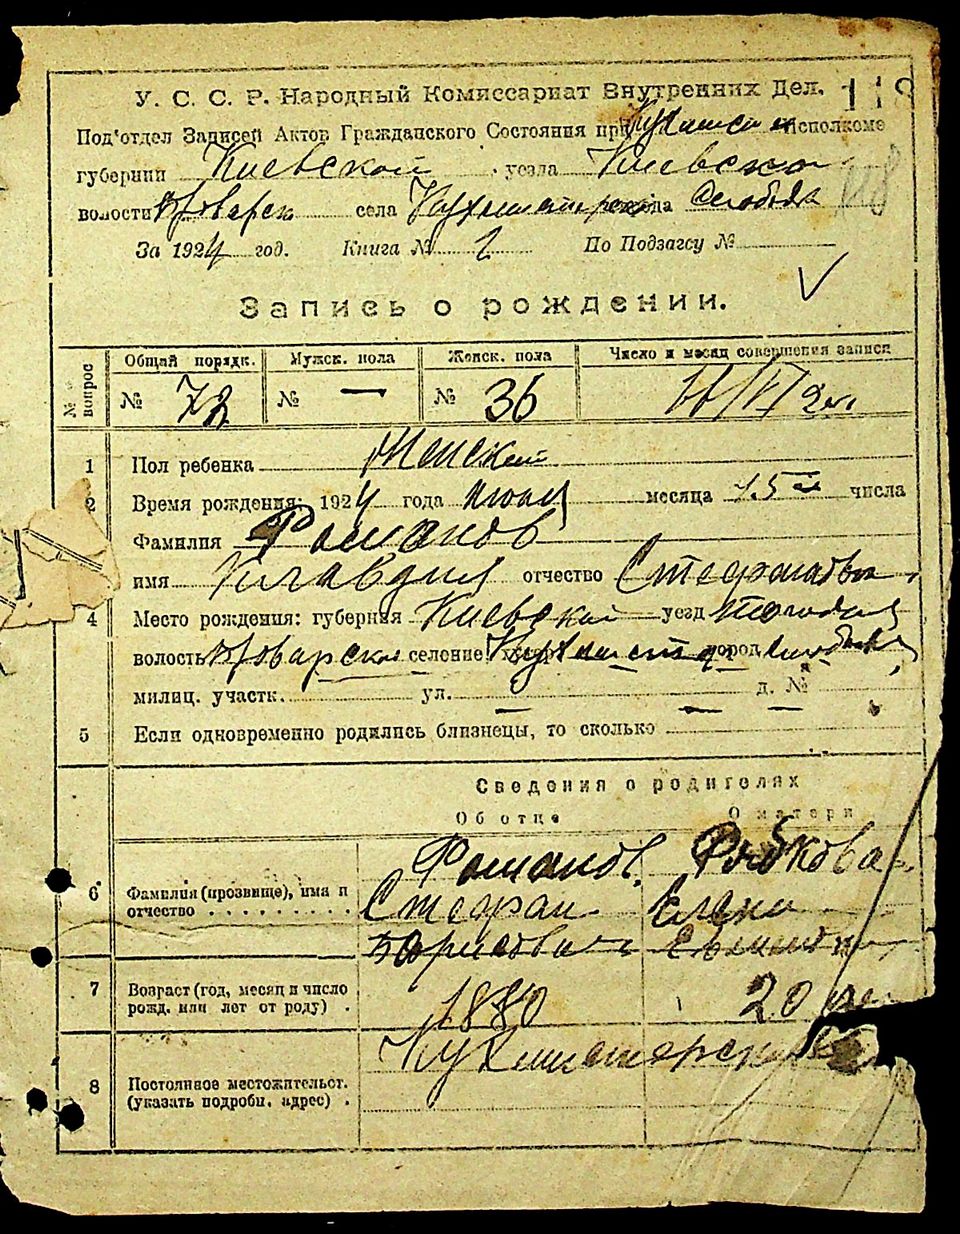 118
У. С. С. Р. Народный Комиссариат Внутренних Дел.
Под'отдел Записей Актов Гражданского Состояния при Исполкоме
губернии Киевской уезда Киевско
волости Броварск села Кухмистерск города Слобода
118
За 1924 год. Книга № 1 По Подзагсу №
Запись о рождении.
№ вопрос Общий порядк. Мужск. пола Женск. пола Число и месяц совершения записи
№ 72 № — № 36
1 Пол ребенка Женский
2 Время рождения: 1924 года месяца 15 числа
Фамилия Романов
имя Клавдия отчество Стефановна
4 Место рождения: губерния Киевской уезд того же
волость Броварской селение, хутор, город Слобода
милиц. участк. ул. — д. № —
5 Если одновременно родились близнецы, то сколько
Сведения о родителях
Об отце О матери
6 Фамилия (прозвище), имя и отчество
Романов, Рыбкова
Стефан Елена
Борисович
7 Возраст (год, месяц и число рожд. или лет от роду)
1880 20
8 Постоянное местожительст. (указать подробн. адрес)
Кухмистерск